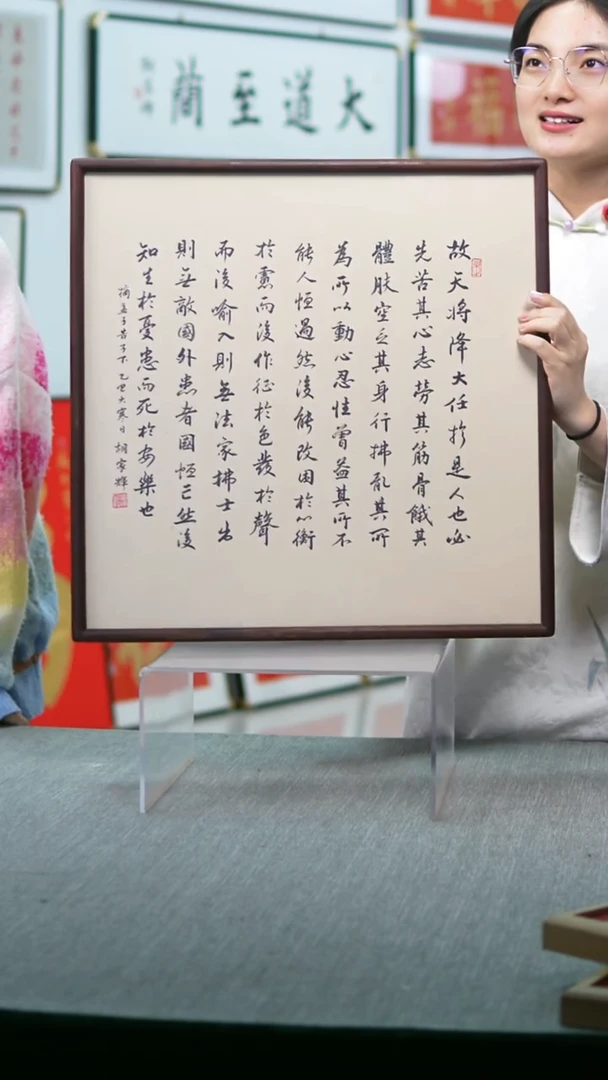 大道至蘭
故天将降大任於是人也必
先苦其心志勞其筋骨餓其
體肤空乏其身行拂乱其所
為所以動心忍性曾益其所不
能人恒過然後能改困於心衡
於慮而後作征於色發於聲
而後喻入則無法家拂士出
則無敵國外患者國恒亡然後
知生於憂患而死於安樂也
摘孟子告子下乙巳大寒日胡家輝
福